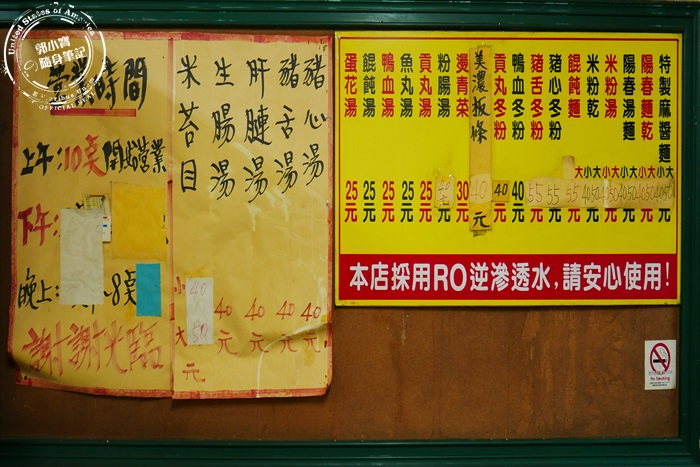 United States of America
郭小寶
の隨身筆記
OFFICIAL
營業時間
上午：10點開始營業
下午：
晚上：8點
謝謝光臨
豬心湯 40元
豬舌湯 40元
肝膁湯 40元
生腸湯 40元
米苔目 小40 大50元
特製麻醬麵 大50 小40元
陽春麵乾 大50 小40元
陽春湯麵 大50 小40元
米粉湯 大50 小40元
米粉乾 大50 小40元
餛飩麵 55元
豬心冬粉 55元
豬舌冬粉 55元
鴨血冬粉 40元
貢丸冬粉 40元
美濃粄條 40元
燙青菜 30元
粉腸湯 40元
貢丸湯 25元
魚丸湯 25元
鴨血湯 25元
餛飩湯 25元
蛋花湯 25元
本店採用RO逆滲透水，請安心使用！
No Smoking